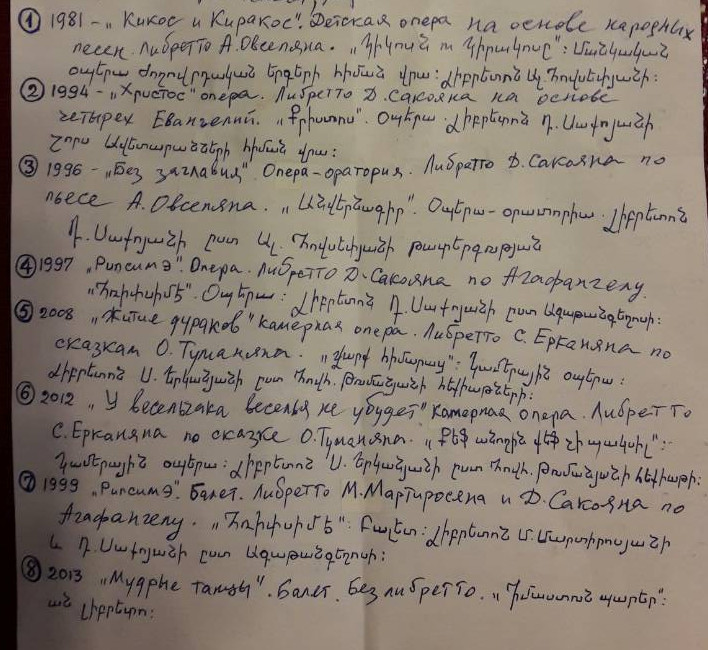 ① 1981 - „Кикос и Киракос". Детская опера на основе народных
песен. Либретто А. Овсепяна. „Կիկոսն ու Կիրակոսը": Մանկական
օպերա ժողովրդական երգերի հիման վրա: Լիբրետոն Ալ. Հովսեփյանի:
② 1994 - „Христос" опера. Либретто Д. Сакояна на основе
четырех Евангелий. „Քրիստոս". Օպերա. Լիբրետոն Դ. Սաքոյանի
Չորս Ավետարանների հիման վրա:
③ 1996 - „Без заглавия". Опера-оратория. Либретто Д. Сакояна по
пьесе А. Овсепяна. „Անվերնագիր". Օպերա-օրատորիա. Լիբրետոն
Դ. Սաքոյանի ըստ Ալ. Հովսեփյանի թատերգության
④ 1997 „Рипсимэ". Опера. Либретто Д. Сакояна по Агафангелу.
„Հռիփսիմէ". Օպերա: Լիբրետոն Դ. Սաքոյանի ըստ Ագաթանգեղոսի:
⑤ 2008 „Житие дураков" камерная опера. Либретто С. Ерканяна по
сказкам О. Туманяна. „Վարք հիմարաց": Կամերային օպերա:
Լիբրետոն Ս. Երկանյանի ըստ Հովհ. Թումանյանի հեքիաթների:
⑥ 2012 „У весельчака веселья не убудет" камерная опера. Либретто
С. Ерканяна по сказке О. Туманяна. „Քեֆ անողին քեֆ չի պակսիլ":
Կամերային օպերա: Լիբրետոն Ս. Երկանյանի ըստ Հովհ. Թումանյանի հեքիաթի:
⑦ 1999 „Рипсимэ". Балет. Либретто М. Мартиросяна и Д. Сакояна по
Агафангелу. „Հռիփսիմէ": Բալետ: Լիբրետոն Մ. Մարտիրոսյանի
և Դ. Սաքոյանի ըստ Ագաթանգեղոսի:
⑧ 2013 „Мудрые танцы". Балет. Без либретто. „Իմաստուն պարեր":
առանց լիբրետո: